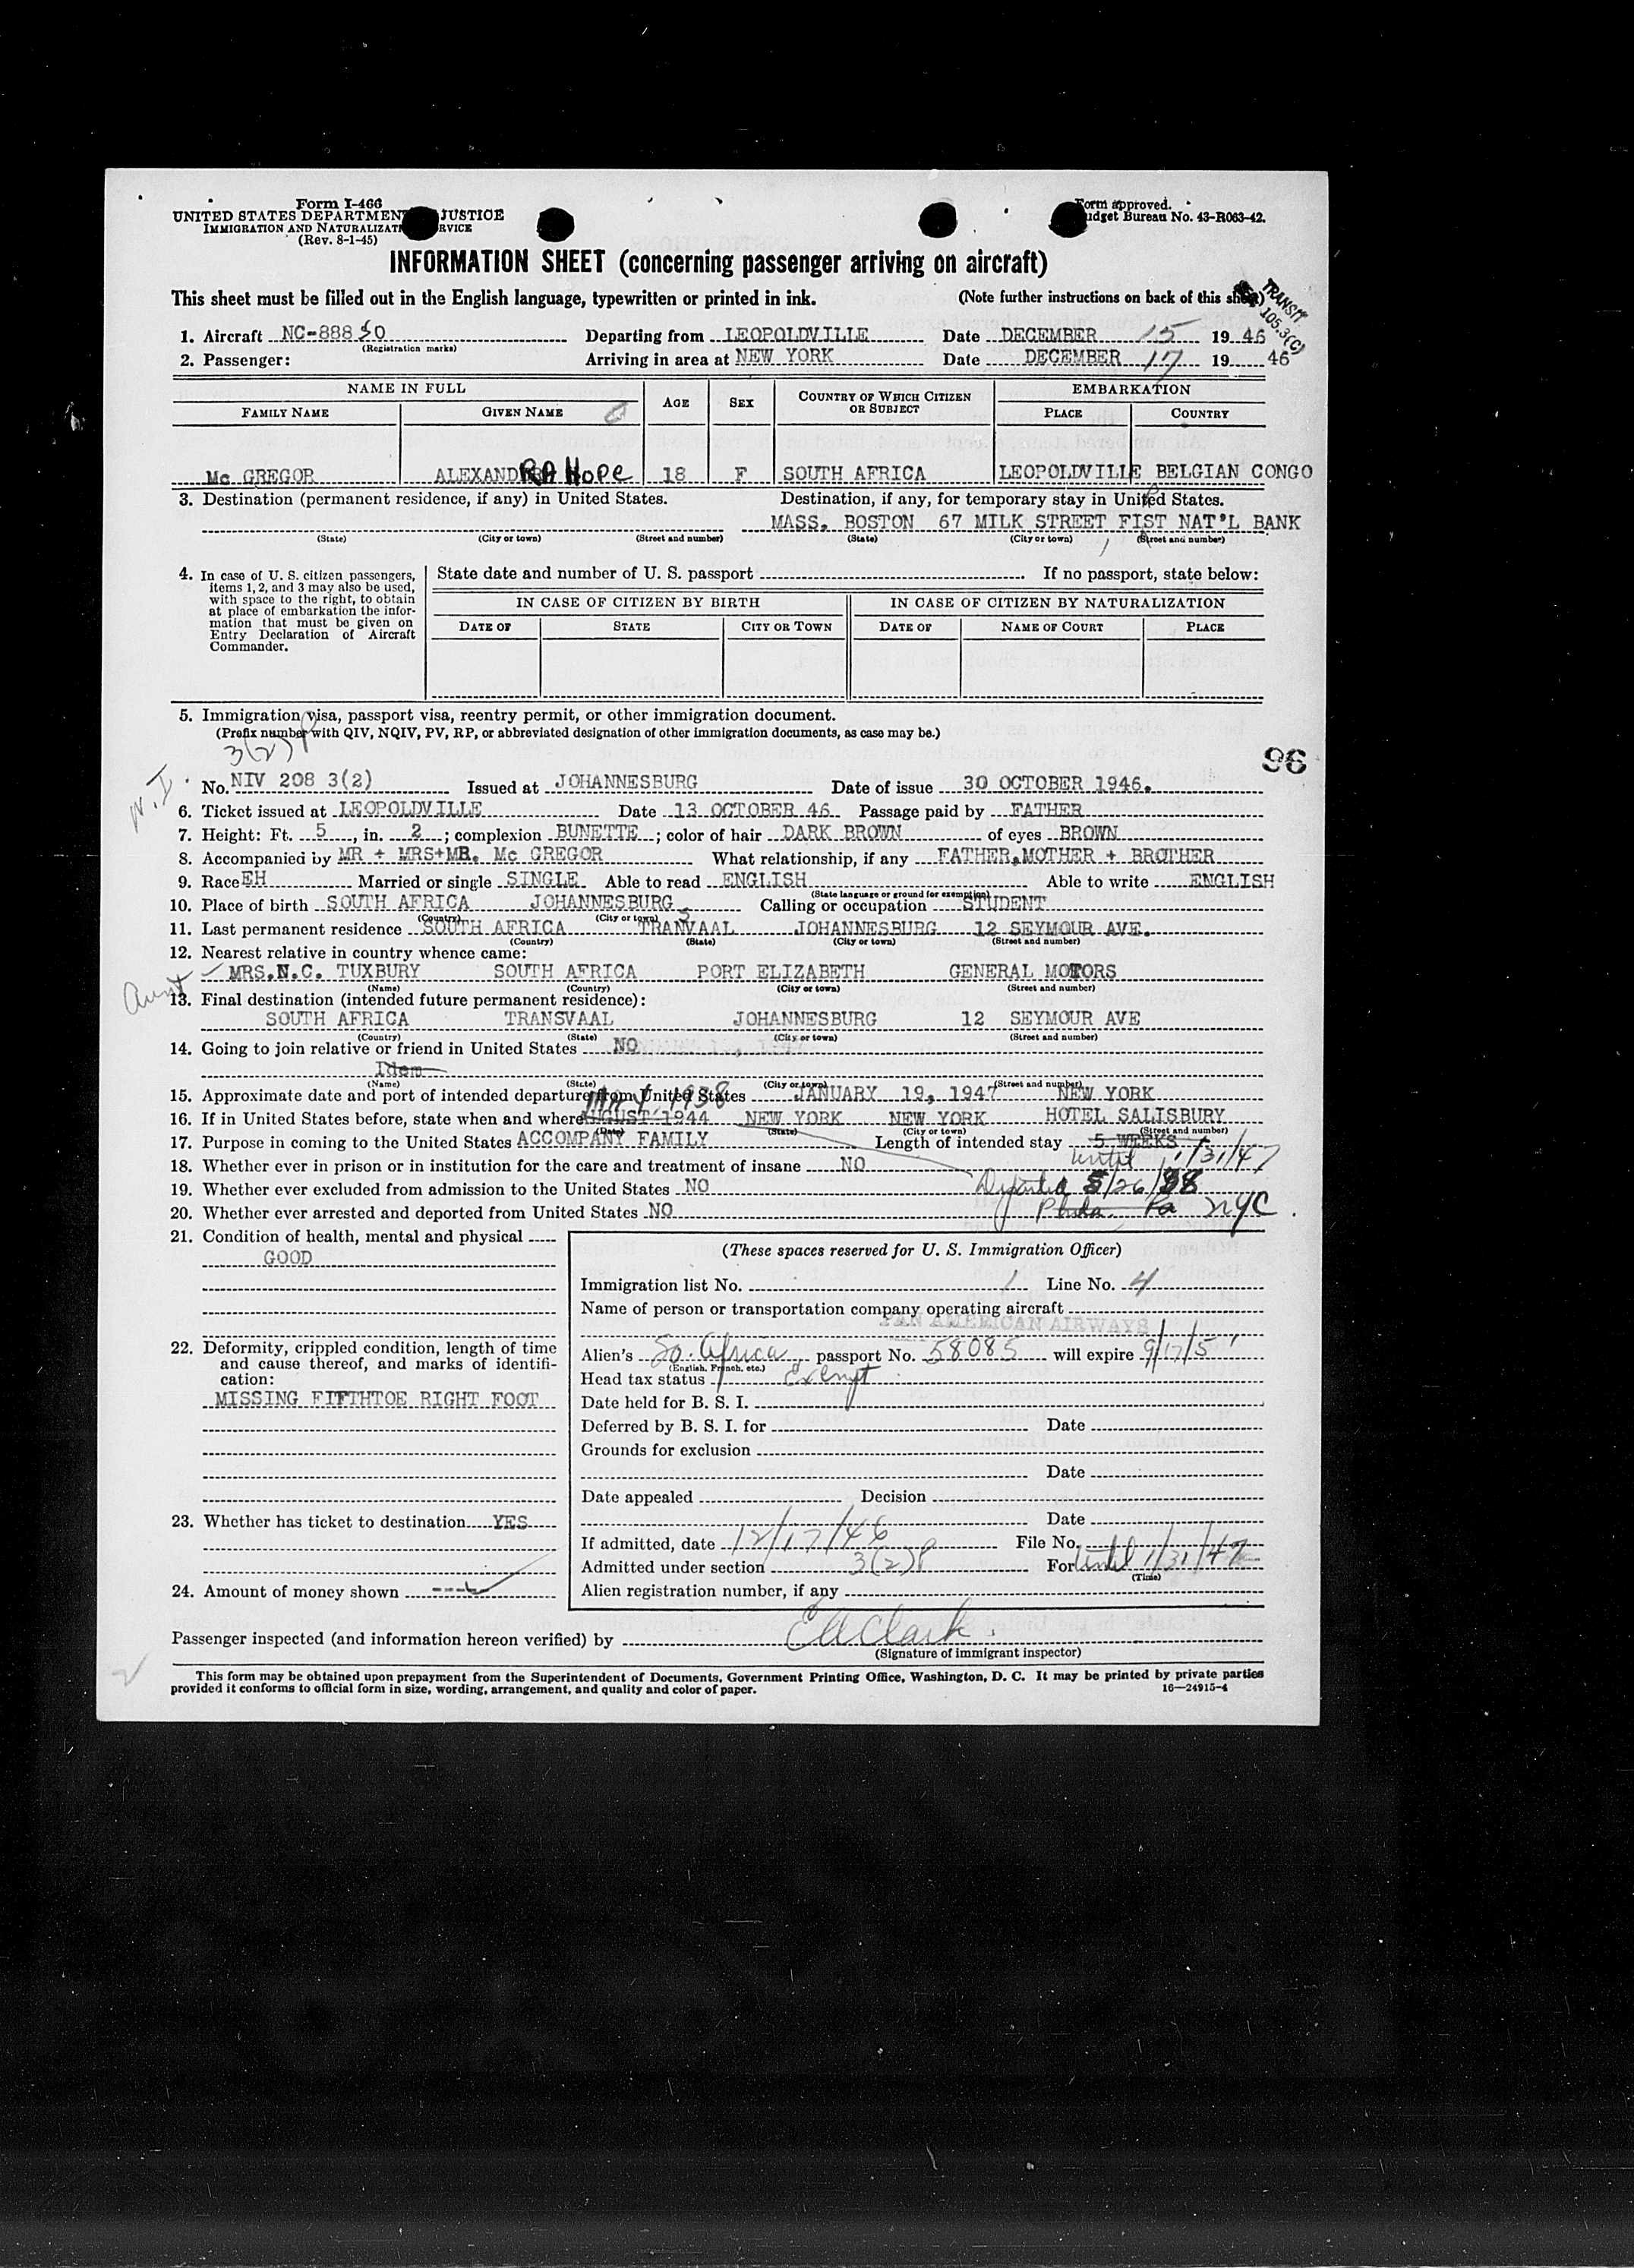 Form I-466
UNITED STATES DEPARTMENT JUSTICE
IMMIGRATION AND NATURALIZATI RVICE
(Rev. 8-1-45)
Form approved.
udget Bureau No. 43-R063-42.
INFORMATION SHEET (concerning passenger arriving on aircraft)
This sheet must be filled out in the English language, typewritten or printed in ink. (Note further instructions on back of this sheet)
TRANSIT
105.3(C)
1. Aircraft NC-88850 Departing from LEOPOLDVILLE Date DECEMBER 15 19 46
(Registration marks)
2. Passenger: Arriving in area at NEW YORK Date DECEMBER 17 19 46
NAME IN FULL AGE SEX COUNTRY OF WHICH CITIZEN OR SUBJECT EMBARKATION
FAMILY NAME GIVEN NAME PLACE COUNTRY
Mc GREGOR ALEXANDRA HOPE 18 F SOUTH AFRICA LEOPOLDVILLE BELGIAN CONGO
3. Destination (permanent residence, if any) in United States. Destination, if any, for temporary stay in United States.
MASS. BOSTON 67 MILK STREET FIST NAT'L BANK
(State) (City or town) (Street and number) (State) (City or town) (Street and number)
4. In case of U. S. citizen passengers, items 1, 2, and 3 may also be used, with space to the right, to obtain at place of embarkation the information that must be given on Entry Declaration of Aircraft Commander.
State date and number of U. S. passport If no passport, state below:
IN CASE OF CITIZEN BY BIRTH IN CASE OF CITIZEN BY NATURALIZATION
DATE OF STATE CITY OR TOWN DATE OF NAME OF COURT PLACE
5. Immigration visa, passport visa, reentry permit, or other immigration document.
(Prefix number with QIV, NQIV, PV, RP, or abbreviated designation of other immigration documents, as case may be.)
3(2)P
96
No. NIV 208 3(2) Issued at JOHANNESBURG Date of issue 30 OCTOBER 1946.
6. Ticket issued at LEOPOLDVILLE Date 13 OCTOBER 46 Passage paid by FATHER
7. Height: Ft. 5, in. 2; complexion BUNETTE; color of hair DARK BROWN of eyes BROWN
8. Accompanied by MR + MRS+MR. Mc GREGOR What relationship, if any FATHER,MOTHER + BROTHER
9. Race EH Married or single SINGLE Able to read ENGLISH Able to write ENGLISH
(State language or ground for exemption)
10. Place of birth SOUTH AFRICA JOHANNESBURG Calling or occupation STUDENT
(Country) (City or town)
11. Last permanent residence SOUTH AFRICA TRANVAAL JOHANNESBURG 12 SEYMOUR AVE.
(Country) (State) (City or town) (Street and number)
12. Nearest relative in country whence came:
Aunt MRS.N.C. TUXBURY SOUTH AFRICA PORT ELIZABETH GENERAL MOTORS
(Name) (Country) (City or town) (Street and number)
13. Final destination (intended future permanent residence):
SOUTH AFRICA TRANSVAAL JOHANNESBURG 12 SEYMOUR AVE
(Country) (State) (City or town) (Street and number)
14. Going to join relative or friend in United States NO
Idem
(Name) (State) (City or town) (Street and number)
15. Approximate date and port of intended departure from United States JANUARY 19, 1947 NEW YORK
MAY 1938
16. If in United States before, state when and where AUGUST 1944 NEW YORK NEW YORK HOTEL SALISBURY
(Date) (State) (City or town) (Street and number)
17. Purpose in coming to the United States ACCOMPANY FAMILY Length of intended stay 5 WEEKS
until 1/31/47
18. Whether ever in prison or in institution for the care and treatment of insane NO
19. Whether ever excluded from admission to the United States NO
Departed 5/26/38
20. Whether ever arrested and deported from United States NO
Phila. Pa NYC
21. Condition of health, mental and physical
GOOD
22. Deformity, crippled condition, length of time and cause thereof, and marks of identification:
MISSING FIFTHTOE RIGHT FOOT
23. Whether has ticket to destination YES
24. Amount of money shown ---
(These spaces reserved for U. S. Immigration Officer)
Immigration list No. 1 Line No. 4
Name of person or transportation company operating aircraft
PAN AMERICAN AIRWAYS
Alien's So. Africa passport No. 58085 will expire 9/17/51
(English, French, etc.)
Head tax status Exempt
Date held for B. S. I.
Deferred by B. S. I. for Date
Grounds for exclusion
Date
Date appealed Decision
Date
If admitted, date 12/17/46 File No.
Admitted under section 3(2)P For until 1/31/47
(Time)
Alien registration number, if any
Passenger inspected (and information hereon verified) by EAClark
(Signature of immigrant inspector)
This form may be obtained upon prepayment from the Superintendent of Documents, Government Printing Office, Washington, D. C. It may be printed by private parties
provided it conforms to official form in size, wording, arrangement, and quality and color of paper. 16—24915-4